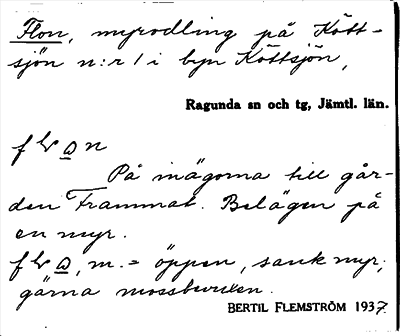 Flon, myrodling på Kött-
sjön n:r 1 i byn Köttsjön,
Ragunda sn och tg, Jämtl. län.
På inägorna till går-
den Frammat. Belägen på
en myr.
m. = öppen, sank myr,
gärna mossbevuxen.
BERTIL FLEMSTRÖM 1937.